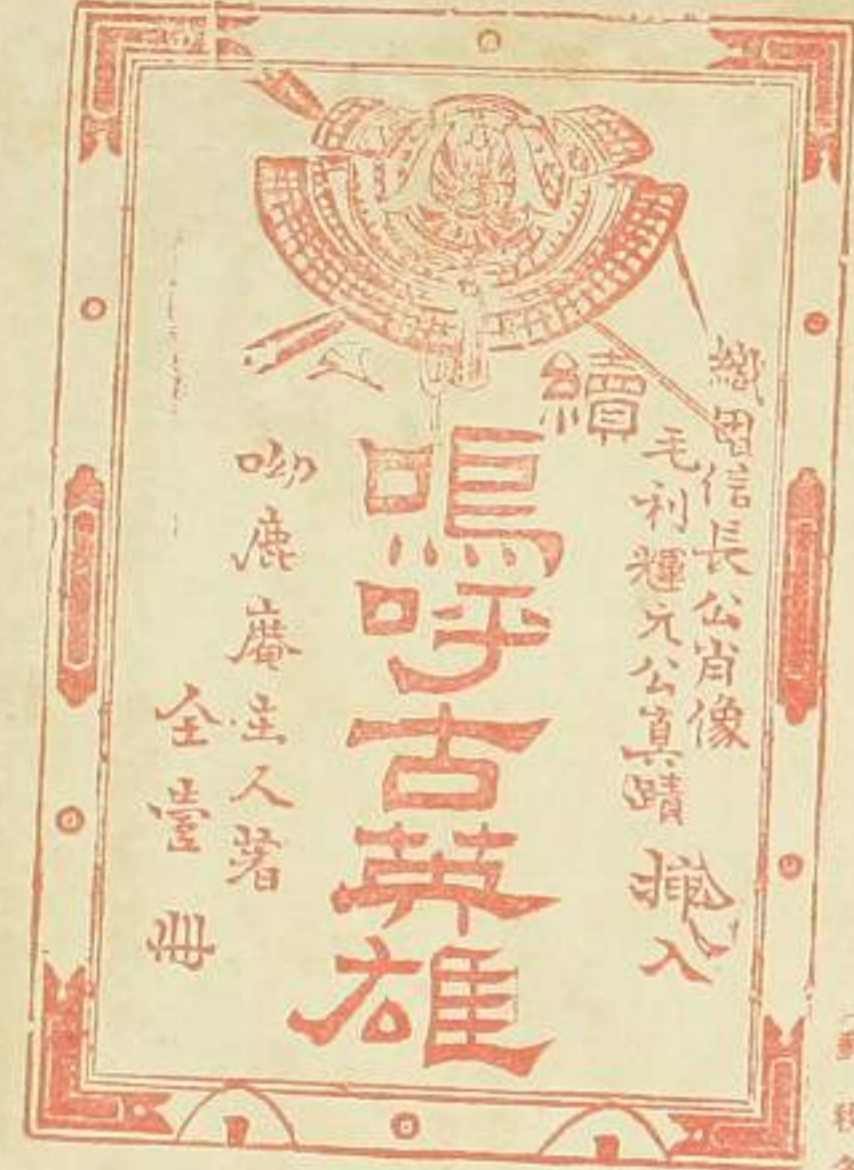 織田信長公肖像
毛利輝元公真蹟
挿入
續
嗚呼古英雄
呦鹿廣主人著
全壹冊